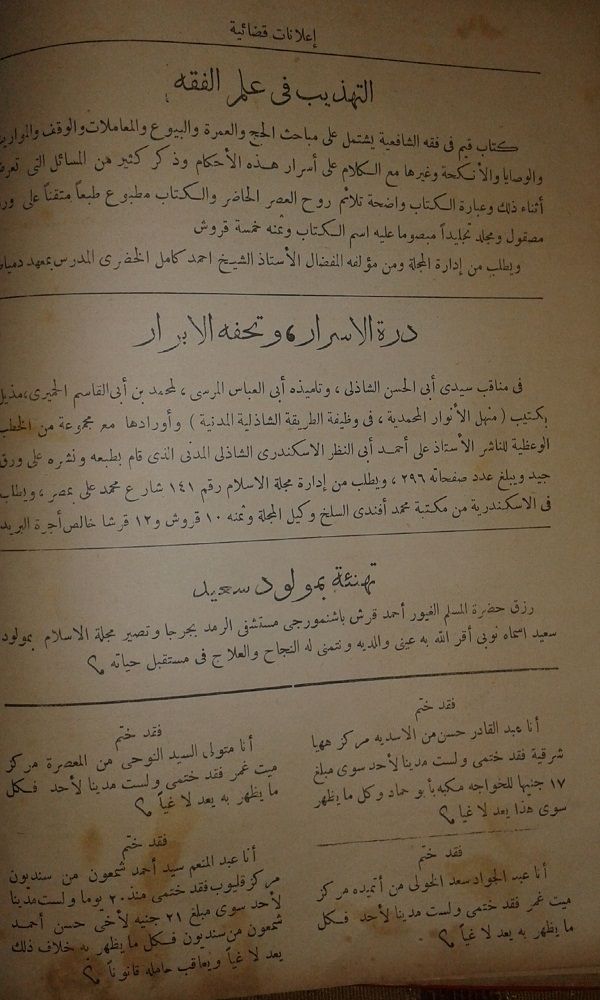 إعلانات قضائية
التهذيب فى علم الفقه
كتاب قيم فى فقه الشافعية يشتمل على مباحث الحج والعمرة والبيوع والمعاملات والوقف والمواريث
والوصايا والأنكحة وغيرها مع الكلام على أسرار هذه الأحكام وذكر كثير من المسائل التى تعرض
أثناء ذلك وعبارة الكتاب واضحة تلائم روح العصر الحاضر والكتاب مطبوع طبعاً متقناً على ورق
مصقول ومجلد تجليداً مبصوما عليه اسم الكتاب وثمنه خمسة قروش
ويطلب من إدارة المجلة ومن مؤلفه المفضال الأستاذ الشيخ احمد كامل الخضرى المدرس بمعهد دمياط
درة الاسرار، وتحفه الابرار
فى مناقب سيدى أبى الحسن الشاذلى ، وتلميذه أبى العباس المرسى ، لمحمد بن أبى القاسم الحميرى ، مذيل
بكتيب ( منهل الأنوار المحمدية ، فى وظيفة الطريقة الشاذلية المدنية ) وأورادها مع مجموعة من الخطب
الوعظية للناشر الأستاذ على أحمد أبى النظر الاسكندرى الشاذلى المدنى الذى قام بطبعه ونشره على ورق
جيد ويبلغ عدد صفحاته ٢٩٦ ، ويطلب من إدارة مجلة الاسلام رقم ١٤١ شارع محمد على بمصر ، ويطلب
فى الاسكندرية من مكتبة محمد أفندى السلخ وكيل المجلة وثمنه ١٠ قروش و١٢ قرشا خالص أجرة البريد
تهنئة بمولود سعيد
رزق حضرة المسلم الغيور أحمد قرش باشتمورجى مستشفى الرمد بجرجا ونصير مجلة الاسلام بمولود
سعيد اسماه نوبى أقر الله به عينى والديه ونتمنى له النجاح والفلاح فى مستقبل حياته
فقد ختم
أنا عبد القادر حسن من الاسديه مركز ههيا
شرقية فقد ختمى ولست مدينا لأحد سوى مبلغ
١٧ جنيها للخواجه مكيه بأبو حماد وكل ما يظهر
سوى هذا يعد لاغيا
فقد ختم
أنا عبد الجواد سعد الخولى من أتميده مركز
ميت غمر فقد ختمى ولست مدينا لأحد فكل
ما يظهر به يعد لاغيا
فقد ختم
أنا متولى السيد النوحى من المعصرة مركز
ميت غمر فقد ختمى ولست مدينا لأحد فكل
ما يظهر به يعد لاغياً
فقد ختم
أنا عبد المنعم سيد أحمد شمعون من سنديون
مركز قليوب فقد ختمى منذ ٢٠ يوما ولست مدينا
لأحد سوى مبلغ ٢١ جنيه لأختى حسن أحمد
شمعون من سنديون فكل ما يظهر به خلاف ذلك
يعد لاغياً ويعاقب حامله قانوناً